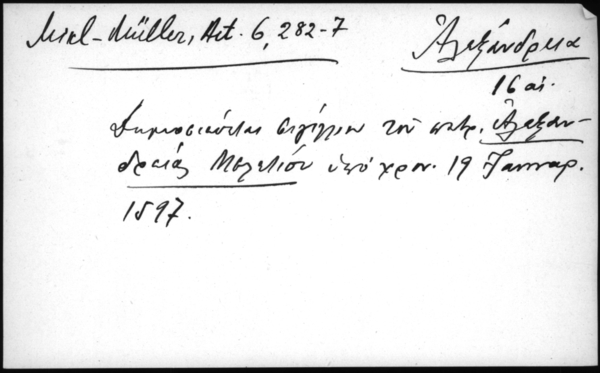 Mikl-Müller, Act. 6, 282-7
Ἀλεξάνδρεια
16 αἰ.
Δημοσιεύεται σιγίλλιον τοῦ πατρ. Ἀλεξαν-
δρείας Μελετίου ὑπό χρον. 19 Ἰανουαρ.
1597.